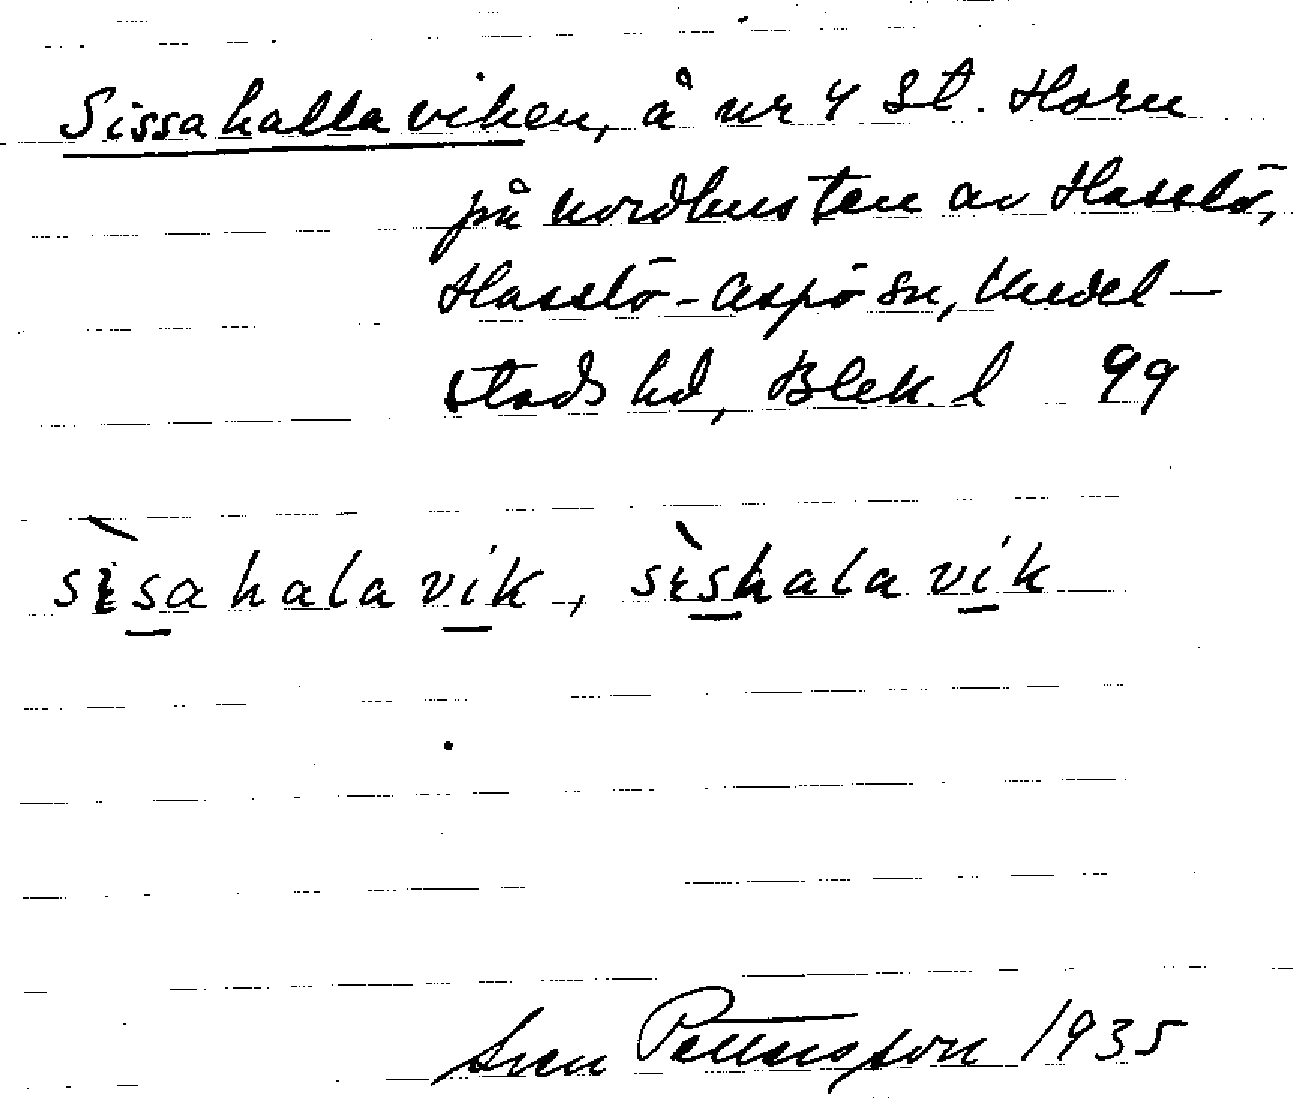 Sissahallaviken, å nr 4 St. Horn
på nordkusten av Hasslö,
Hasslö-Aspö sn, Medel-
stads hd, Blek. l 99
sìsahalavik, sìshalavik
Sven Pettersson 1935